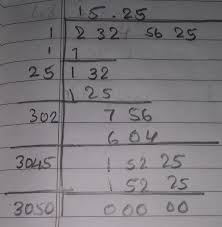 15.25
1 2 32 56 25
1 1
25 1 32
1 25
302 7 56
6 04
3045 1 52 25
1 52 25
3050 0 00 00